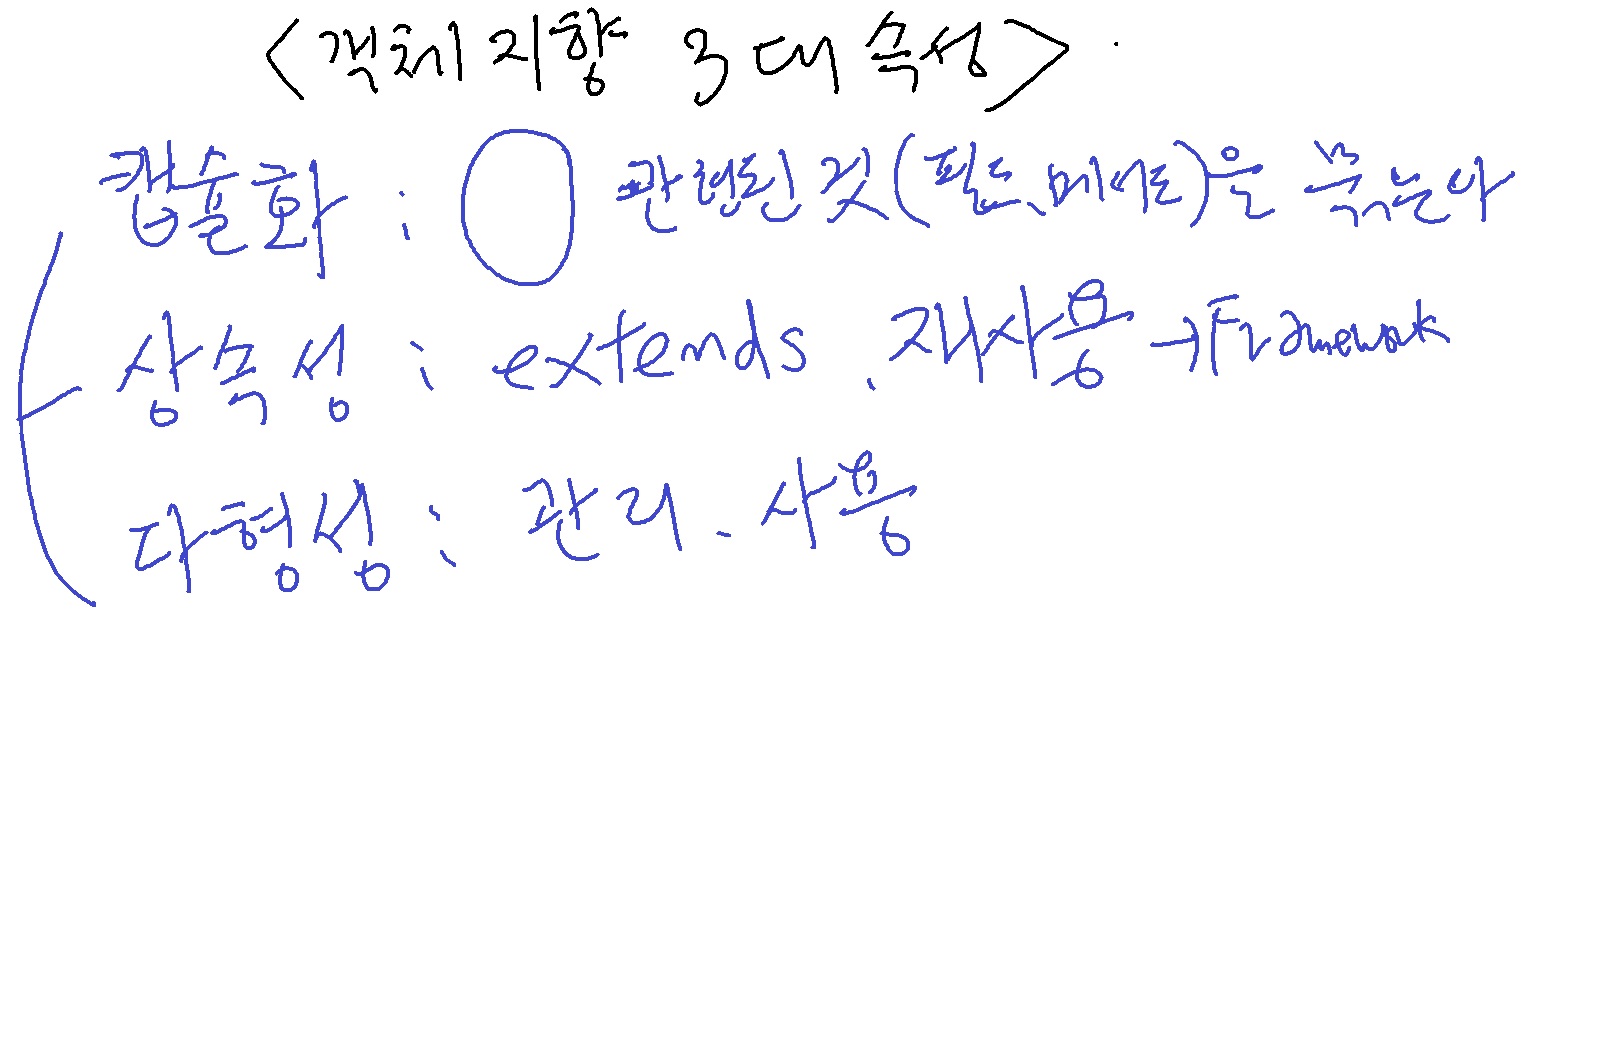 <객체 지향 3대 속성>
캡슐화 : 관련된 것(필드, 메서드)을 묶는다
상속성 : extends, 재사용 → Framework
다형성 : 관리, 사용